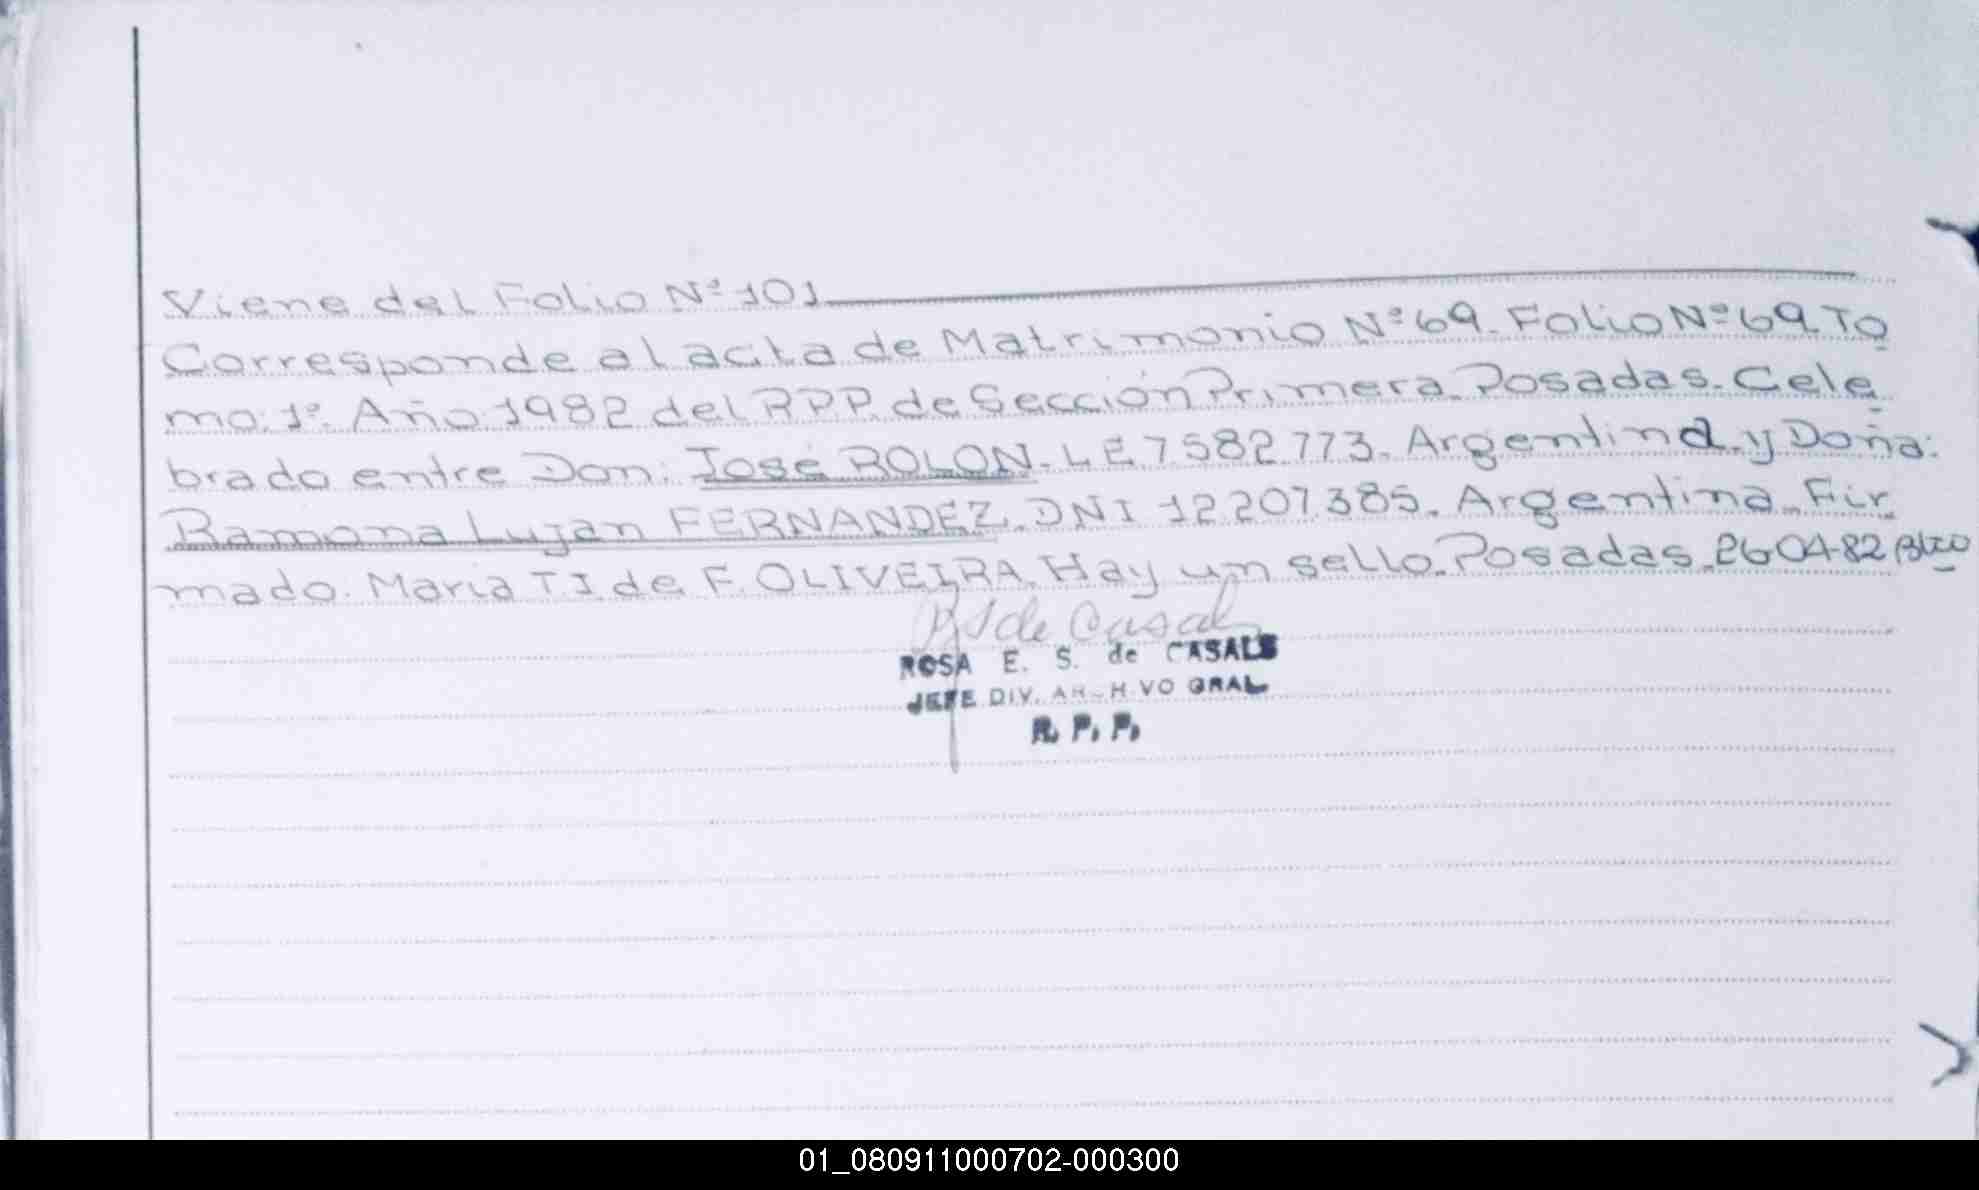 Viene del Folio Nº 101
Corresponde al acta de Matrimonio Nº 69. Folio Nº 69. To
mo: 1º. Año: 1982 del RPP. de Sección Primera. Posadas. Cele
brado entre Don: José ROLON. LE 7.582.773. Argentina y Doña:
Ramona Lujan FERNANDEZ. DNI 12.207.385. Argentina. Fir
mado. Maria T.I. de F. OLIVEIRA. Hay un sello. Posadas. 26-04-82
ROSA E. S. de CASALS
JEFE DIV. ARCHIVO GRAL
R. P. P.
01_080911000702-000300